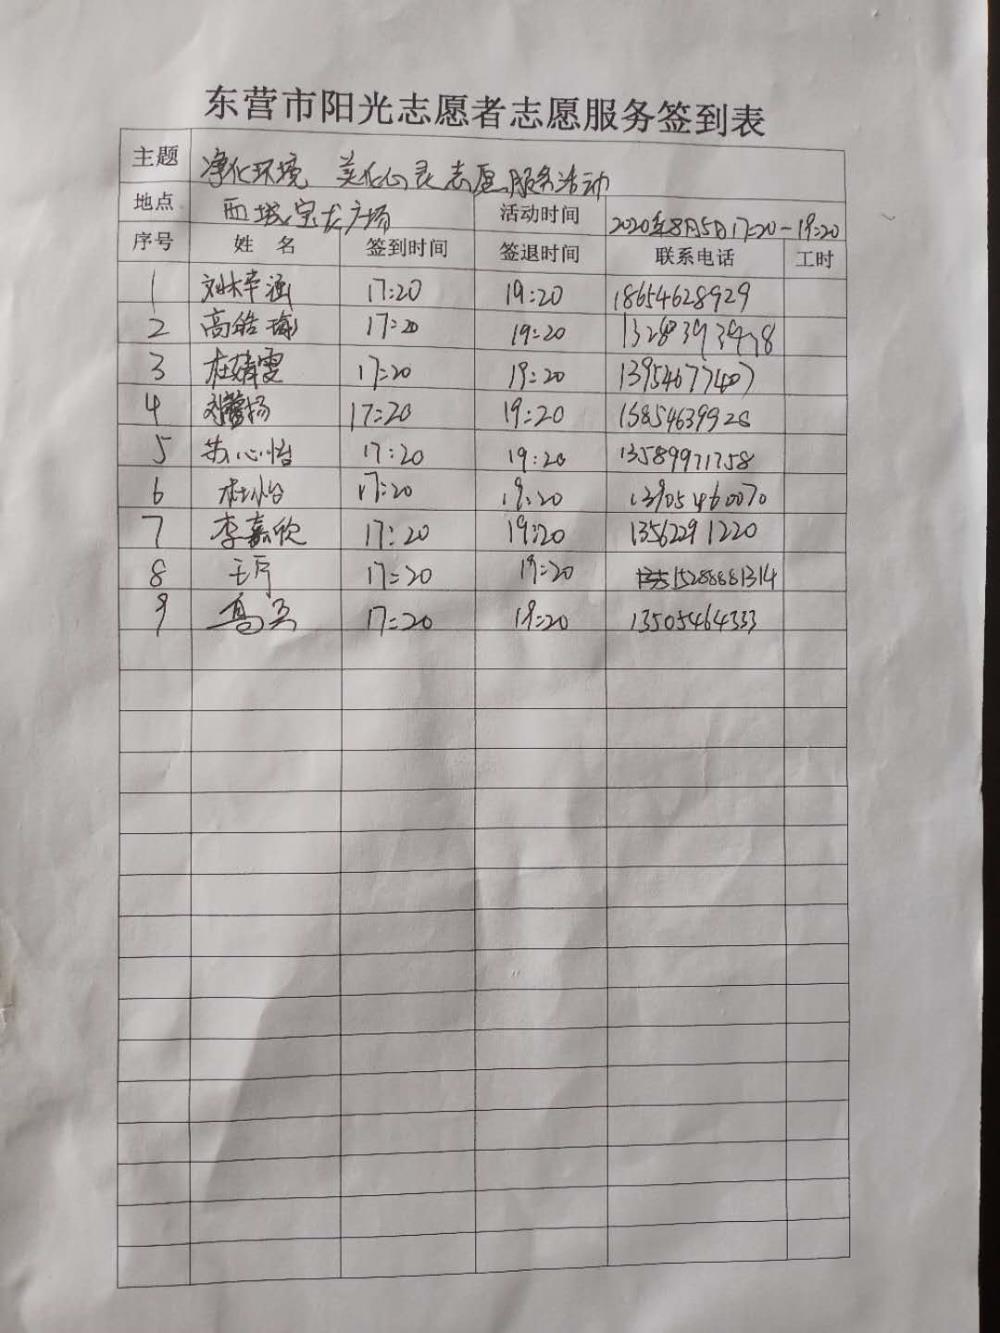 东营市阳光志愿者志愿服务签到表
主题 净化环境 美化心灵志愿服务活动
地点 西城宝龙广场 活动时间 2020年8月5日17:20-19:20
序号 姓名 签到时间 签退时间 联系电话 工时
1 刘 涵 17:20 19:20 18654628929
2 高皓 17:20 19:20
3 杜婧雯 17:20 19:20 13954677407
4 刘 扬 17:20 19:20 15854639928
5 苏心怡 17:20 19:20
6 杜 17:20 19:20 13905460070
7 李嘉欣 17:20 19:20 13562291220
8 王 17:20 19:20 15288881314
9 17:20 19:20 13505464333